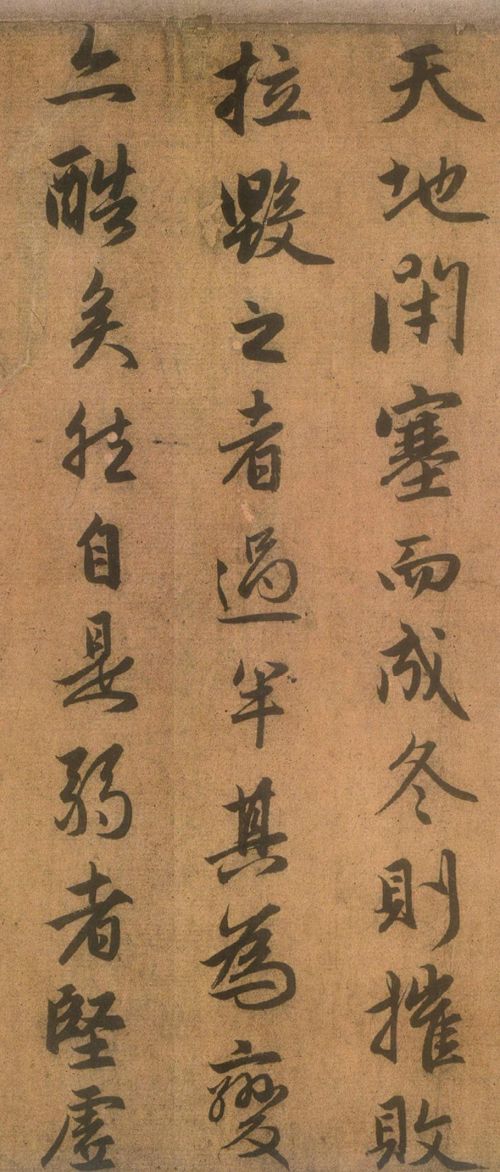 天地閉塞而成冬則摧敗
拉毀之者過半其為變
亦酷矣然自是弱者堅虛